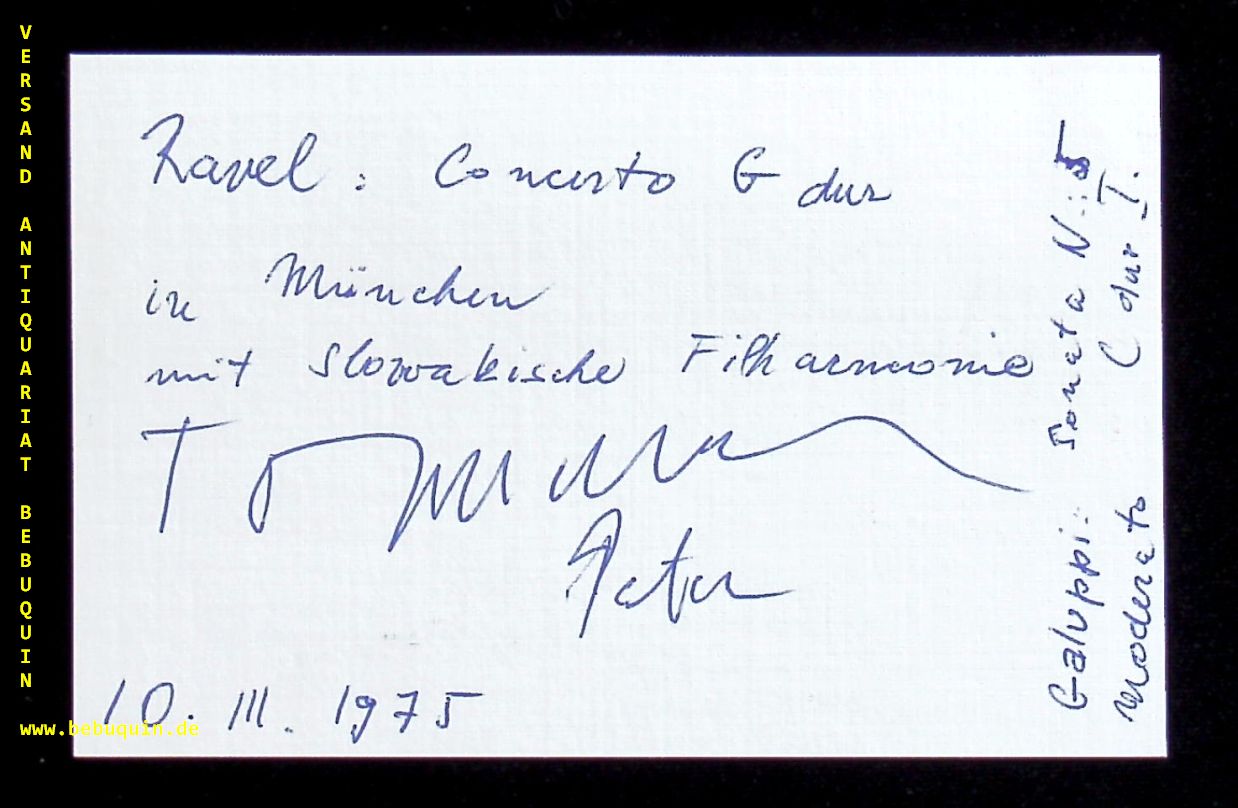 Ravel : Concerto G dur
in München
mit Slowakische Filharmonie
Toperczer
Peter
10. III. 1975
Galuppi: Sonata N: 5
Moderato C dur I.
VERSAND ANTIQUARIAT BEBUQUIN
www.bebuquin.de